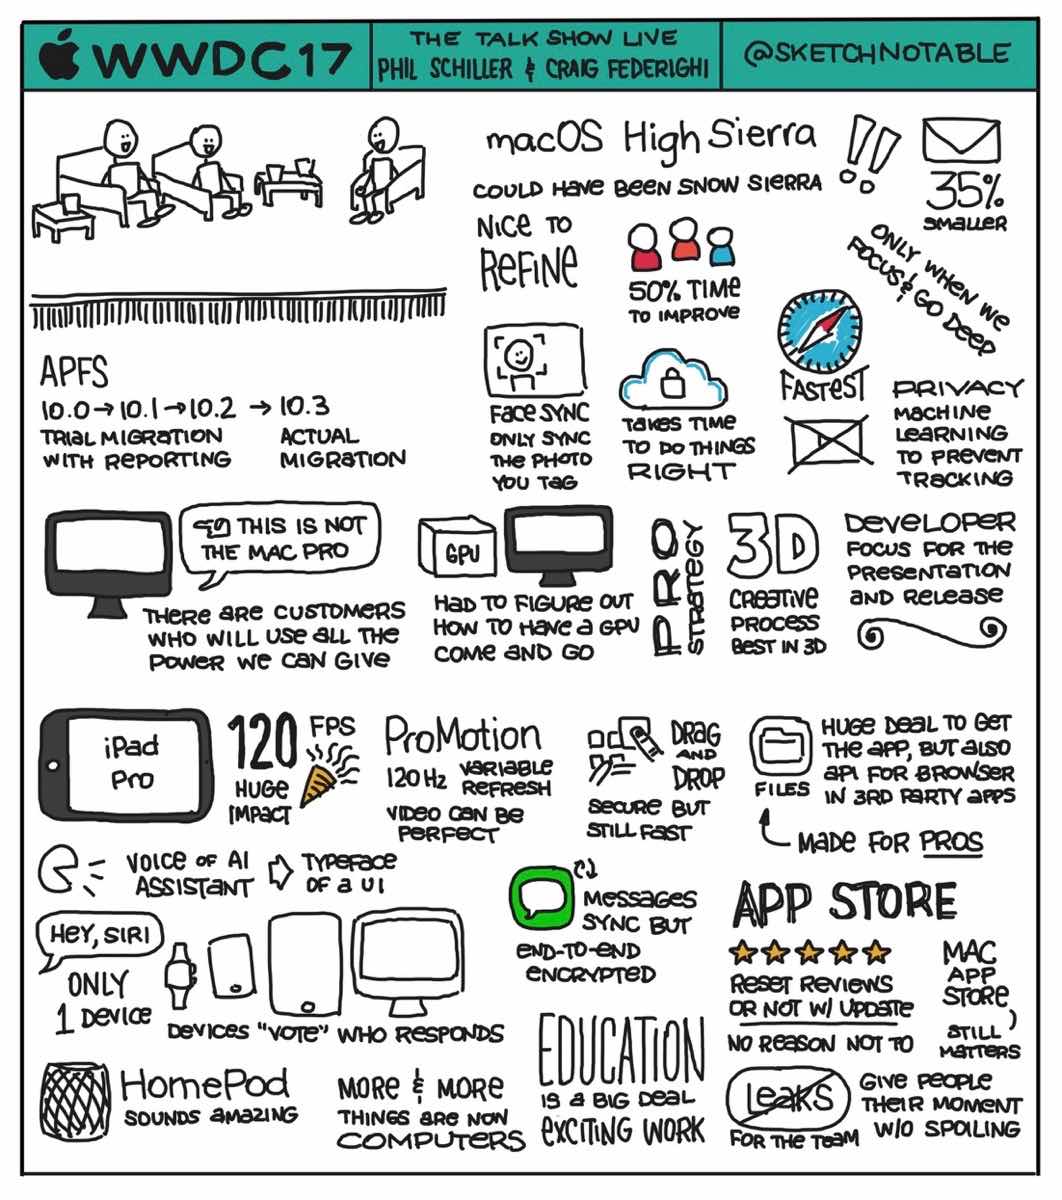 WWDC17
THE TALK SHOW LIVE
PHIL SCHILLER & CRAIG FEDERIGHI
@SKETCHNOTABLE
macOS High Sierra
COULD HAVE BEEN SNOW SIERRA
!!
35%
SMALLER
NICE TO
REFINE
50% TIME
TO IMPROVE
ONLY WHEN WE
FOCUS & GO DEEP
APFS
10.0→10.1→10.2 → 10.3
TRIAL MIGRATION
WITH REPORTING
ACTUAL
MIGRATION
FACE SYNC
ONLY SYNC
THE PHOTO
YOU TAG
TAKES TIME
TO DO THINGS
RIGHT
FASTEST
PRIVACY
MACHINE
LEARNING
TO PREVENT
TRACKING
THIS IS NOT
THE MAC PRO
THERE ARE CUSTOMERS
WHO WILL USE ALL THE
POWER WE CAN GIVE
GPU
HAD TO FIGURE OUT
HOW TO HAVE A GPU
COME AND GO
PRO
STRATEGY
3D
CREATIVE
PROCESS
BEST IN 3D
DEVELOPER
FOCUS FOR THE
PRESENTATION
AND RELEASE
iPad
Pro
120 FPS
HUGE
IMPACT
ProMotion
120Hz VARIABLE
REFRESH
VIDEO CAN BE
PERFECT
DRAG
AND
DROP
SECURE BUT
STILL FAST
FILES
HUGE DEAL TO GET
THE APP, BUT ALSO
API FOR BROWSER
IN 3RD PARTY APPS
MADE FOR PROS
VOICE OF AI
ASSISTANT
TYPEFACE
OF A UI
HEY, SIRI
ONLY
1 DEVICE
DEVICES "VOTE" WHO RESPONDS
MESSAGES
SYNC BUT
END-TO-END
ENCRYPTED
APP STORE
RESET REVIEWS
OR NOT W/ UPDATE
NO REASON NOT TO
MAC
APP
STORE
STILL
MATTERS
HomePod
SOUNDS AMAZING
MORE & MORE
THINGS ARE NOW
COMPUTERS
EDUCATION
IS A BIG DEAL
EXCITING WORK
LEAKS
FOR THE TEAM
GIVE PEOPLE
THEIR MOMENT
W/O SPOILING